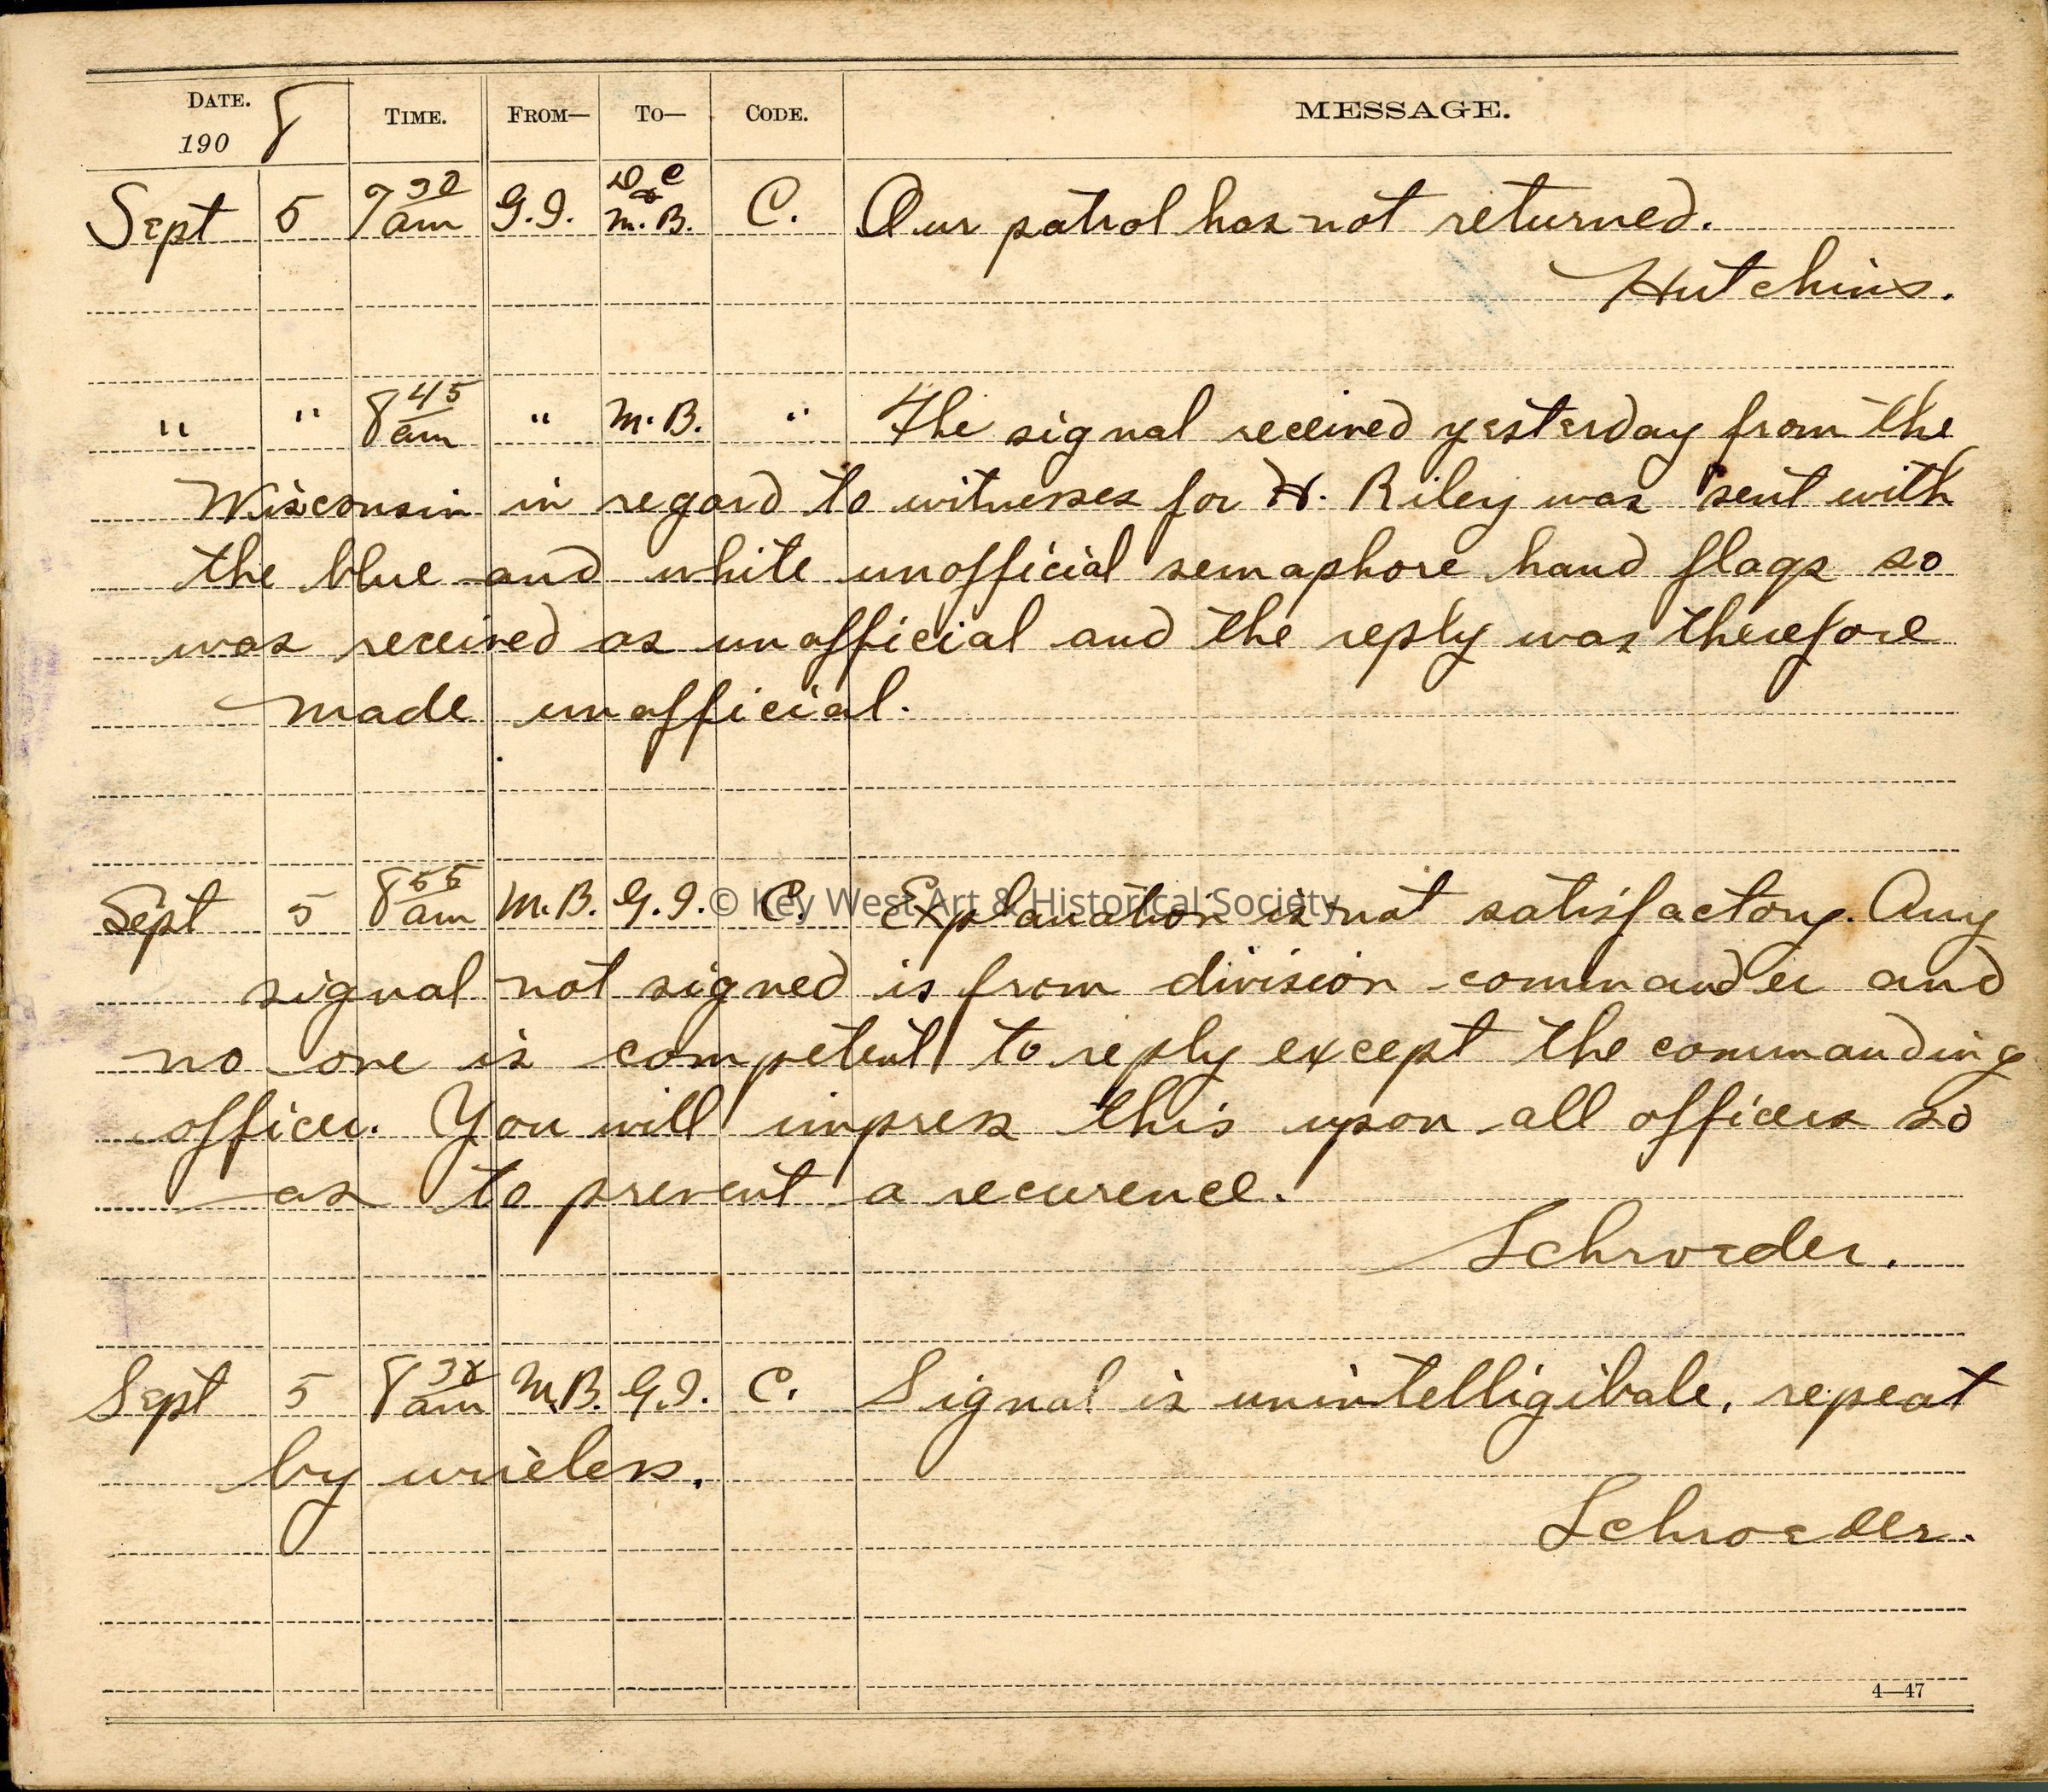 DATE. TIME. FROM— TO— CODE. MESSAGE.
190 8
Sept 5 7 30 am G.I. D C & M.B. C. Our patrol has not returned.
Hutchins.
" " 8 45 am " M.B. " The signal received yesterday from the
Wisconsin in regard to witnesses for H. Riley was sent with
the blue and white unofficial semaphore hand flags so
was received as unofficial and the reply was therefore
made unofficial.
Sept 5 8 55 am M.B. G.I. C. Explanation is not satisfactory. Any
signal not signed is from division commander and
no one is competent to reply except the commanding
officer. You will impress this upon all officers so
as to prevent a recurence.
Schroeder.
Sept 5 8 am M.B. G.I. C. Signal is unintelligibale, repeat
by wrieless.
Schroeder.
4—47
© Key West Art & Historical Society